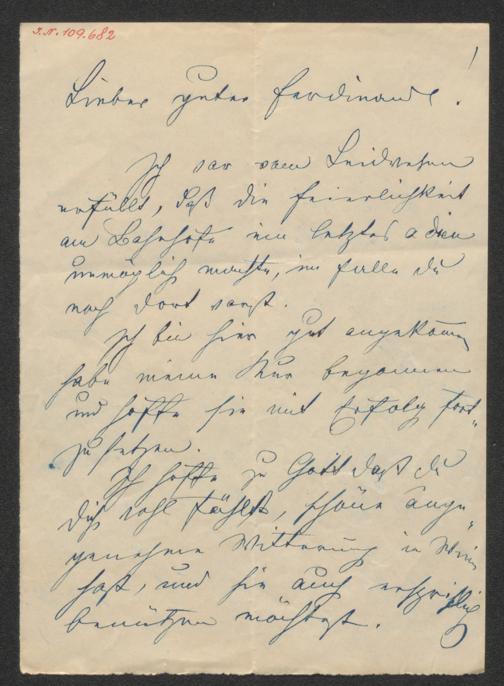 I. N. 109.682
1
Lieber guter Ferdinand!
Ich war vom Leidwesen
erfüllt, daß die Feierlichkeit
am Bahnhofe ein letztes adieu
unmöglich machte, im Falle du
noch dort warst.
Ich bin hier gut angekommen
habe meine Kur begonnen
und hoffe sie mit Erfolg fort-
zusetzen.
Ich hoffe zu Gott daß du
dich wohl fühlst, schöne ange-
genehme Witterung in Wien
hast, und sie auch
benützen möchtest.